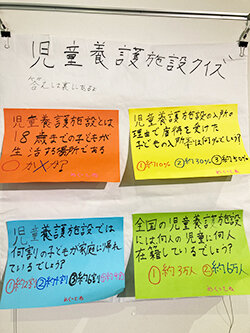 児童養護施設クイズ
答えは裏にあるよ
児童養護施設とは
18歳までの子どもが
生活する場所である
○か×か?
めくってね
児童養護施設の入所の
理由で虐待を受けた
子どもの入所率は何%でしょう?
①約10% ②約30% ③約50%
めくってね
児童養護施設では
何割の子どもが家庭に帰れ
ているでしょう?
めくってね
全国の児童養護施設
には何人の児童に何人
在籍しているでしょう?
①約3万人 ②約6万人
めくってね